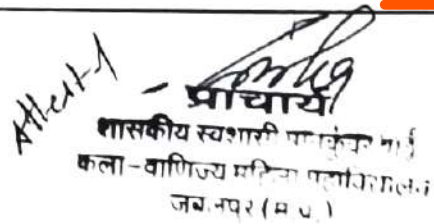 Attest
प्राचार्य
शासकीय स्वशासी मानकुंवर बाई
कला-वाणिज्य महिला महाविद्यालय
जबलपुर (म.प्र.)